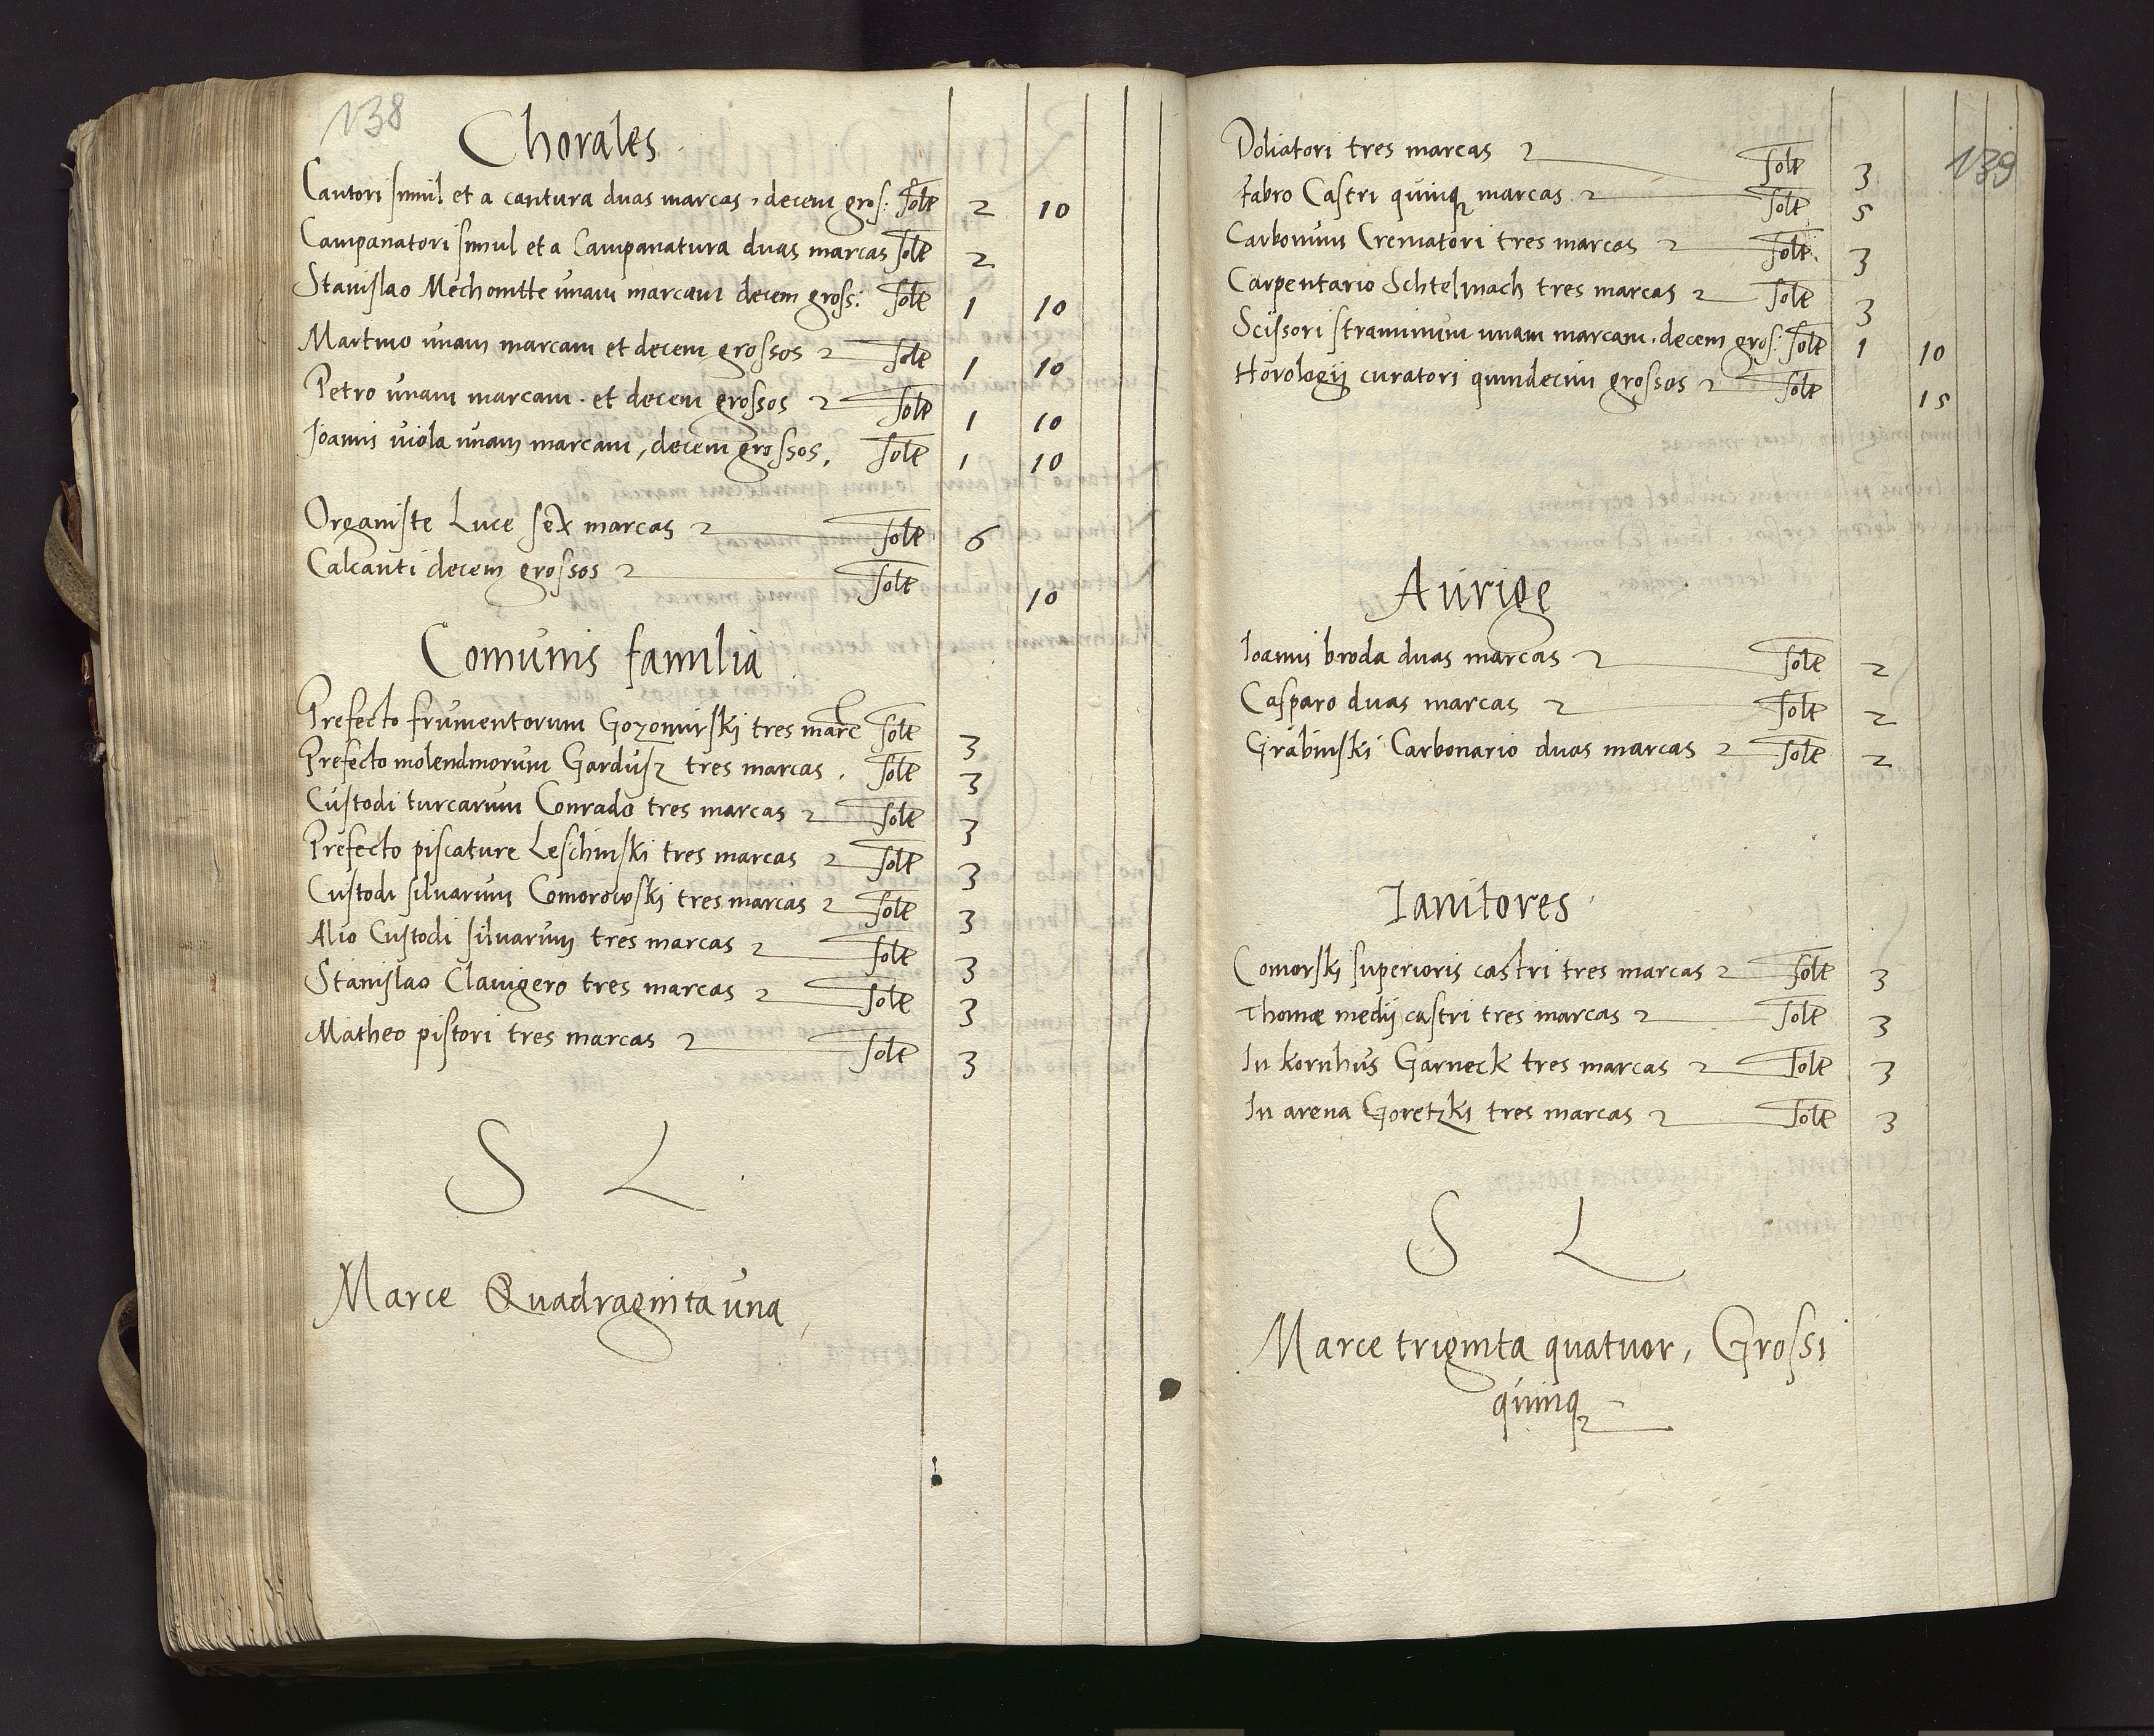 138
Chorales
Cantori simul et a cantura duas marcas, decem gros: solt 2 10
Campanatori simul et a Campanatura duas marcas solt 2
Stanislao Mechomtte unam marcam decem gross: solt 1 10
Martino unam marcam et decem grossos solt 1 10
Petro unam marcam. et decem grossos solt 1 10
Ioanni viola unam marcam, decem grossos, solt 1 10
Organiste Luce sex marcas solt 6
Calcanti decem grossos solt 10
Comunis familia
Prefecto frumentorum Gozomirskj tres marc solt 3
Prefecto molendinorum Gardusz tres marcas. solt 3
Custodi turcarum Conrado tres marcas solt 3
Prefecto piscature Leschinski tres marcas solt 3
Custodi siluarum Comorowskj tres marcas solt 3
Alio Custodi siluarum tres marcas solt 3
Stanislao Clavigero tres marcas solt 3
Matheo pistori tres marcas solt 3
S L
Marce Quadraginta una,
139
Doliatori tres marcas solt 3
Fabro Castri quinq marcas solt 5
Carbonum Crematori tres marcas solt 3
Carpentario Schtelmach tres marcas solt 3
Scissori straminum unam marcam. decem gros: solt 1 10
Horologij curatori quindecim grossos solt 15
Aurige
Ioanni broda duas marcas solt 2
Casparo duas marcas solt 2
Grabinski Carbonario duas marcas solt 2
Ianitores
Comorski superioris castri tres marcas solt 3
Thomæ medij castri tres marcas solt 3
In kornhus Garneck tres marcas solt 3
In arena Goretzki tres marcas solt 3
S L
Marce triginta quatuor, Grossi
quinq